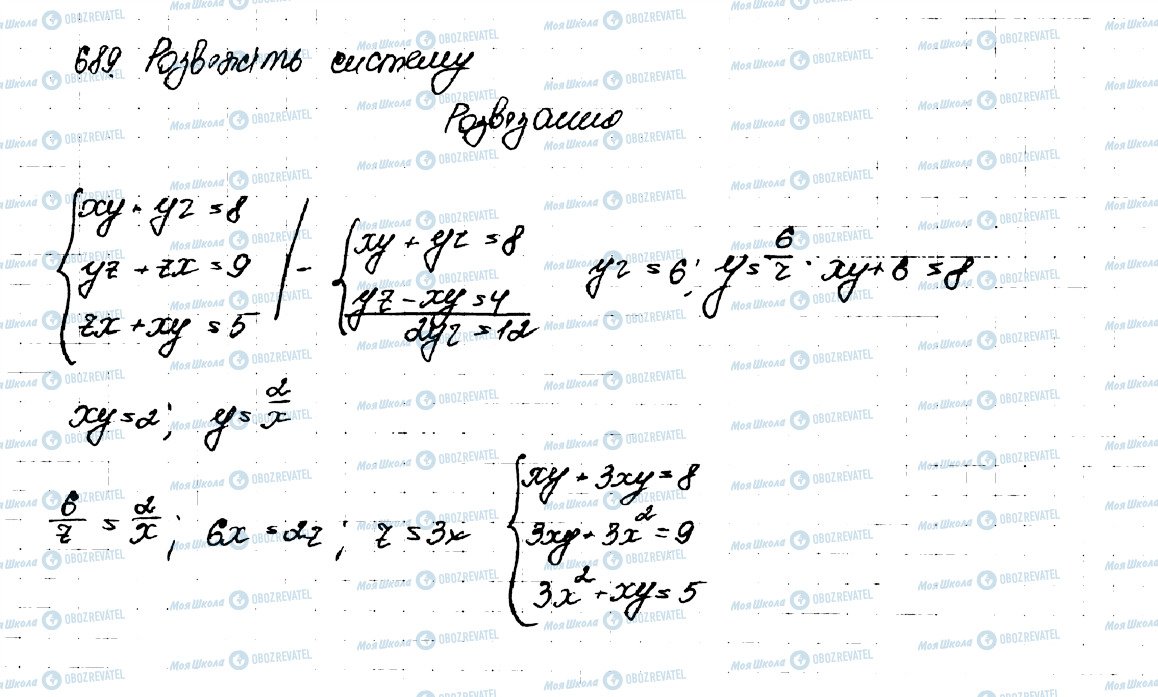 689. Розвяжіть систему
Розвязання
{ xy + yz = 8
yz + zx = 9
zx + xy = 5 | -
{ xy + yz = 8
yz - xy = 4
2yz = 12
yz = 6; y = 6/z. xy + 6 = 8
xy = 2; y = 2/x
6/z = 2/x; 6x = 2z; z = 3x
{ xy + 3xy = 8
3xy + 3x² = 9
3x² + xy = 5